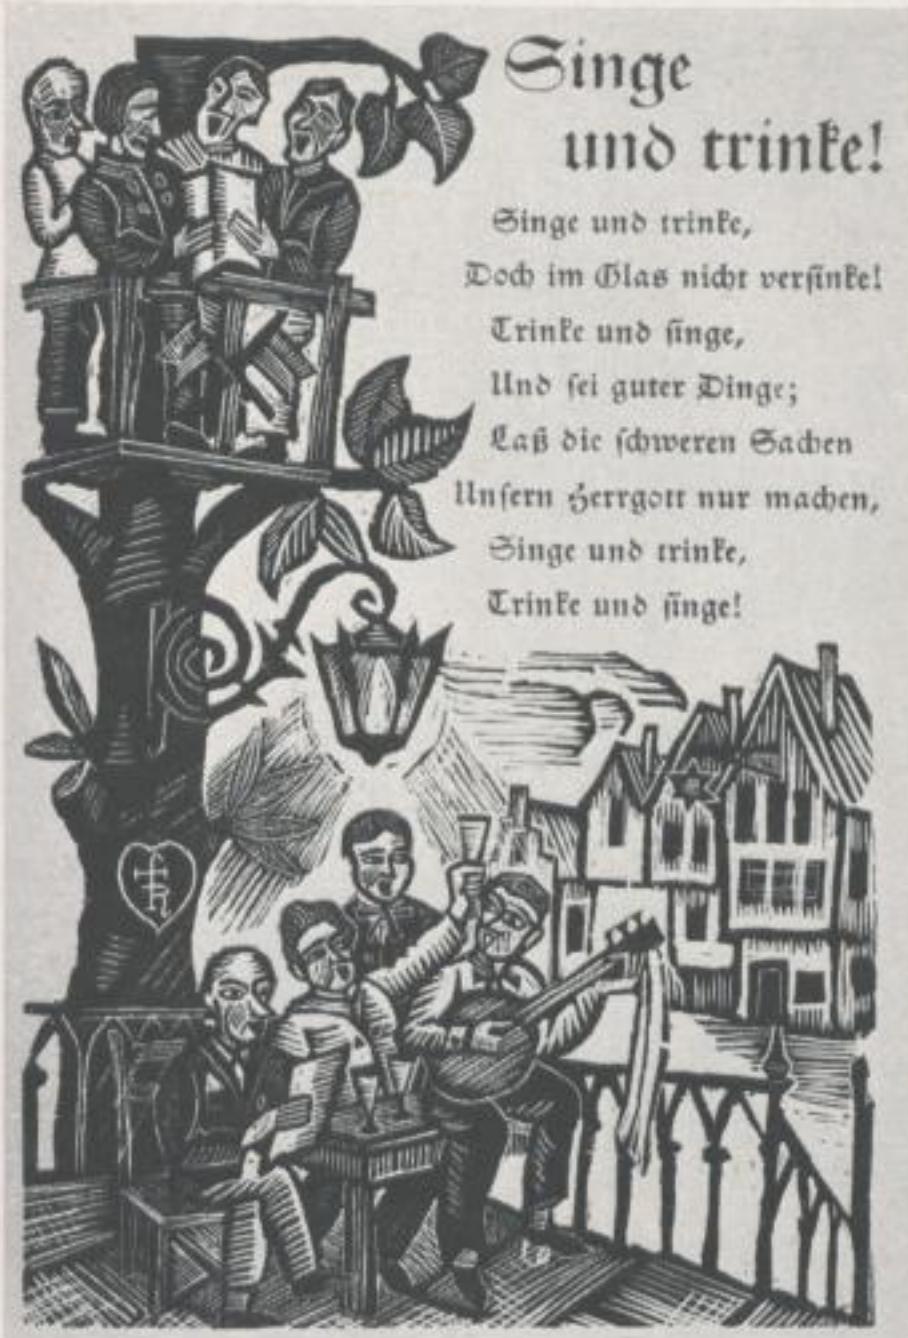 Singe
und trinke!
Singe und trinke,
Doch im Glas nicht versinke!
Trinke und singe,
Und sei guter Dinge;
Laß die schweren Sachen
Unsern Herrgott nur machen,
Singe und trinke,
Trinke und singe!